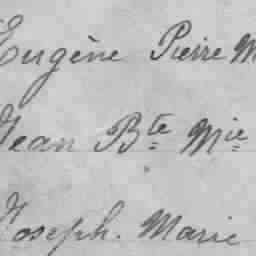 Eugène Pierre M
Jean Bte Mie
Joseph. Marie